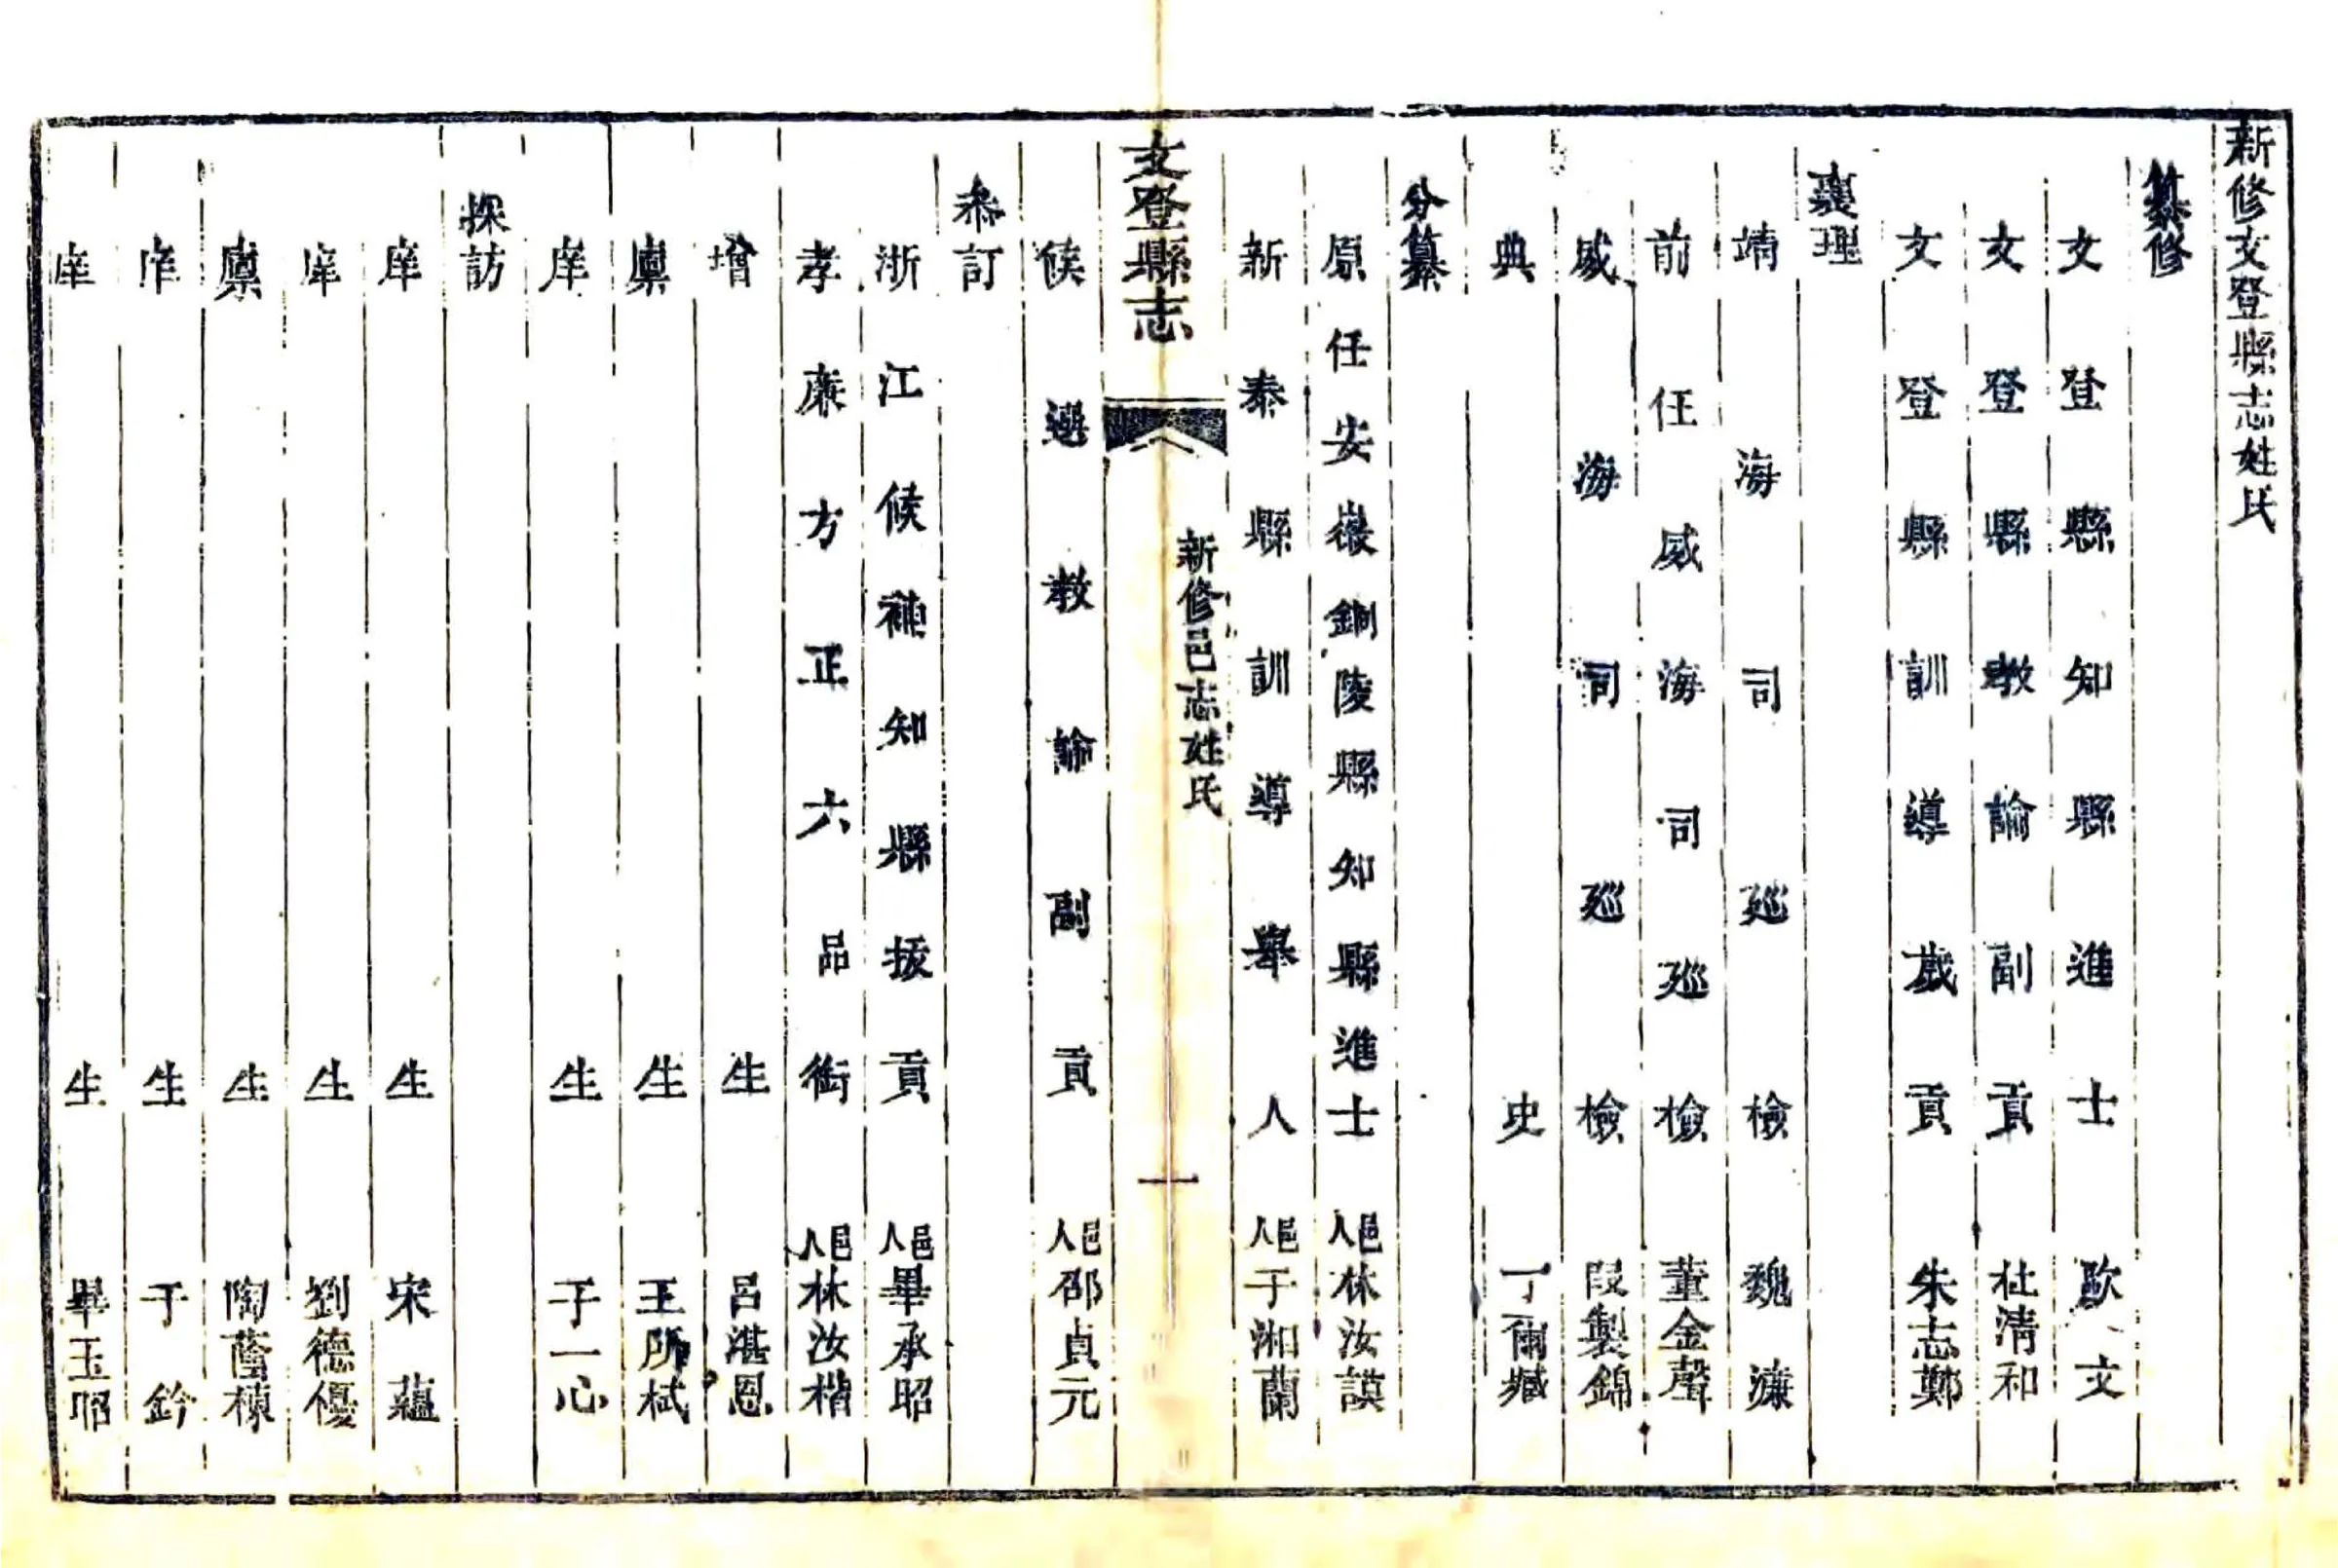 新修文登縣志姓氏
纂修
文登縣知縣進士歐文
文登縣教諭副貢杜淸和
文登縣訓導歲貢朱志鄭
襄理
靖海司廵檢魏濂
前任威海司廵檢董金聲
威海司廵檢段製錦
典史丁爾臧
分纂
原任安徽銅陵縣知縣進士邑人林汝謨
新泰縣訓導舉人邑人于湘蘭
文登縣志
新修邑志姓氏
一
候選教諭副貢邑人邵貞元
叅訂
浙江候補知縣拔貢邑人畢承昭
孝亷方正六品銜邑人林汝楷
增生呂湛恩
廩生王所栻
庠生于一心
探訪
庠生宋蘊
庠生劉德優
廩生陶蔭棟
庠生于鈐
庠生畢玉昭